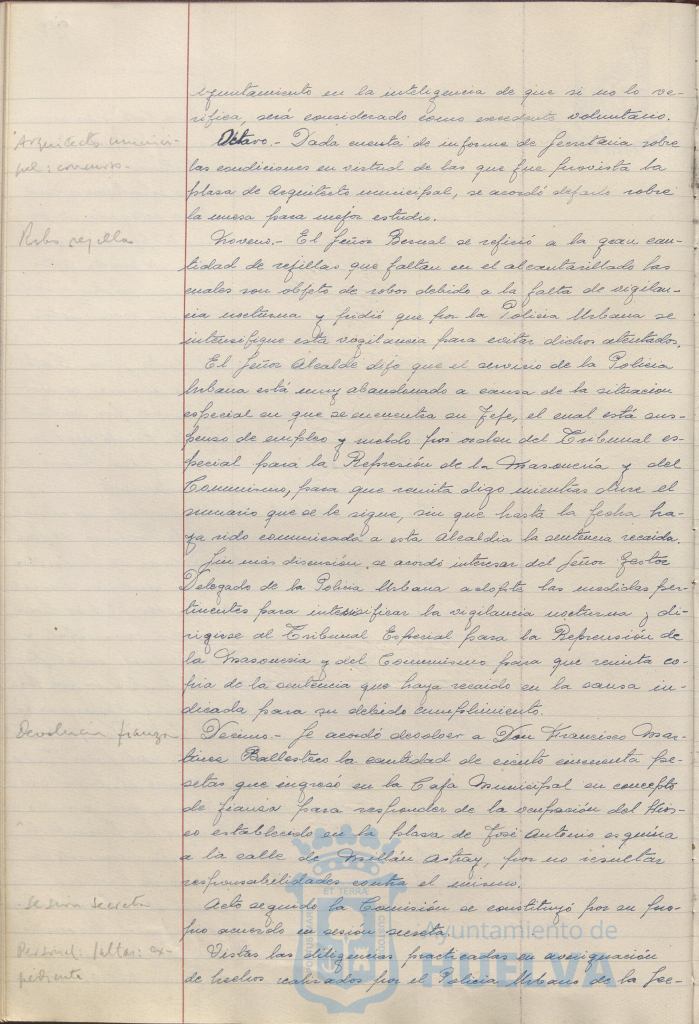 Ayuntamiento en la inteligencia de que si no lo ve-
rifica, será considerado como excedente voluntario.
Arquitecto munici-
pal: concurso.-
Octavo.- Dada cuenta de informe de Secretaria sobre
las condiciones en virtud de las que fue provista la
plaza de Arquitecto municipal, se acordó dejarlo sobre
la mesa para mejor estudio.
Robo rejillas
Noveno.- El Señor Bernal se refirió a la gran can-
tidad de rejillas que faltan en el alcantarillado las
cuales son objeto de robos debido a la falta de vigilan-
cia nocturna y pidió que por la Policia Urbana se
intensifique esta vigilancia para evitar dichos atentados.
El Señor Alcalde dijo que el servicio de la Policia
Urbana está muy abandonado a causa de la situacion
especial en que se encuentra su Jefe, el cual está sus-
penso de empleo y sueldo por orden del Tribunal es-
pecial para la Represión de la Masoneria y del
Comunismo, para que remita digo mientras dure el
sumario que se le sigue, sin que hasta la fecha ha-
ya sido comunicada a esta Alcaldia la sentencia recaida.
Sin más discusión se acordó interesar del Señor Gestor
Delegado de la Policia Urbana adopte las medidas per-
tinentes para intensificar la vigilancia nocturna y di-
rigirse al Tribunal Especial para la Reprensión de
la Masoneria y del Comunismo para que remita co-
pia de la sentencia que haya recaido en la causa in-
dicada para su debido cumplimiento.
Devolucion fianza
Decimo.- Se acordó devolver a Don Francisco Mar-
tinez Ballestero la cantidad de ciento cincuenta pe-
setas que ingresó en la Caja Municipal en concepto
de fianza para responder de la ocupación del Kios-
co establecido en la plaza de José Antonio esquina
a la calle de Millán Astray, por no resultar
responsabilidades contra el mismo.
Sesion secreta
Acto seguido la Comisión se constituyó por su pro-
pio acuerdo en sesión secreta.
Personal: faltas: ex-
pediente
Vistas las diligencias practicadas en averiguación
de hechos realizados por el Policia Urbano de la Sec-
ET TERRA
Ayuntamiento de
HUELVA